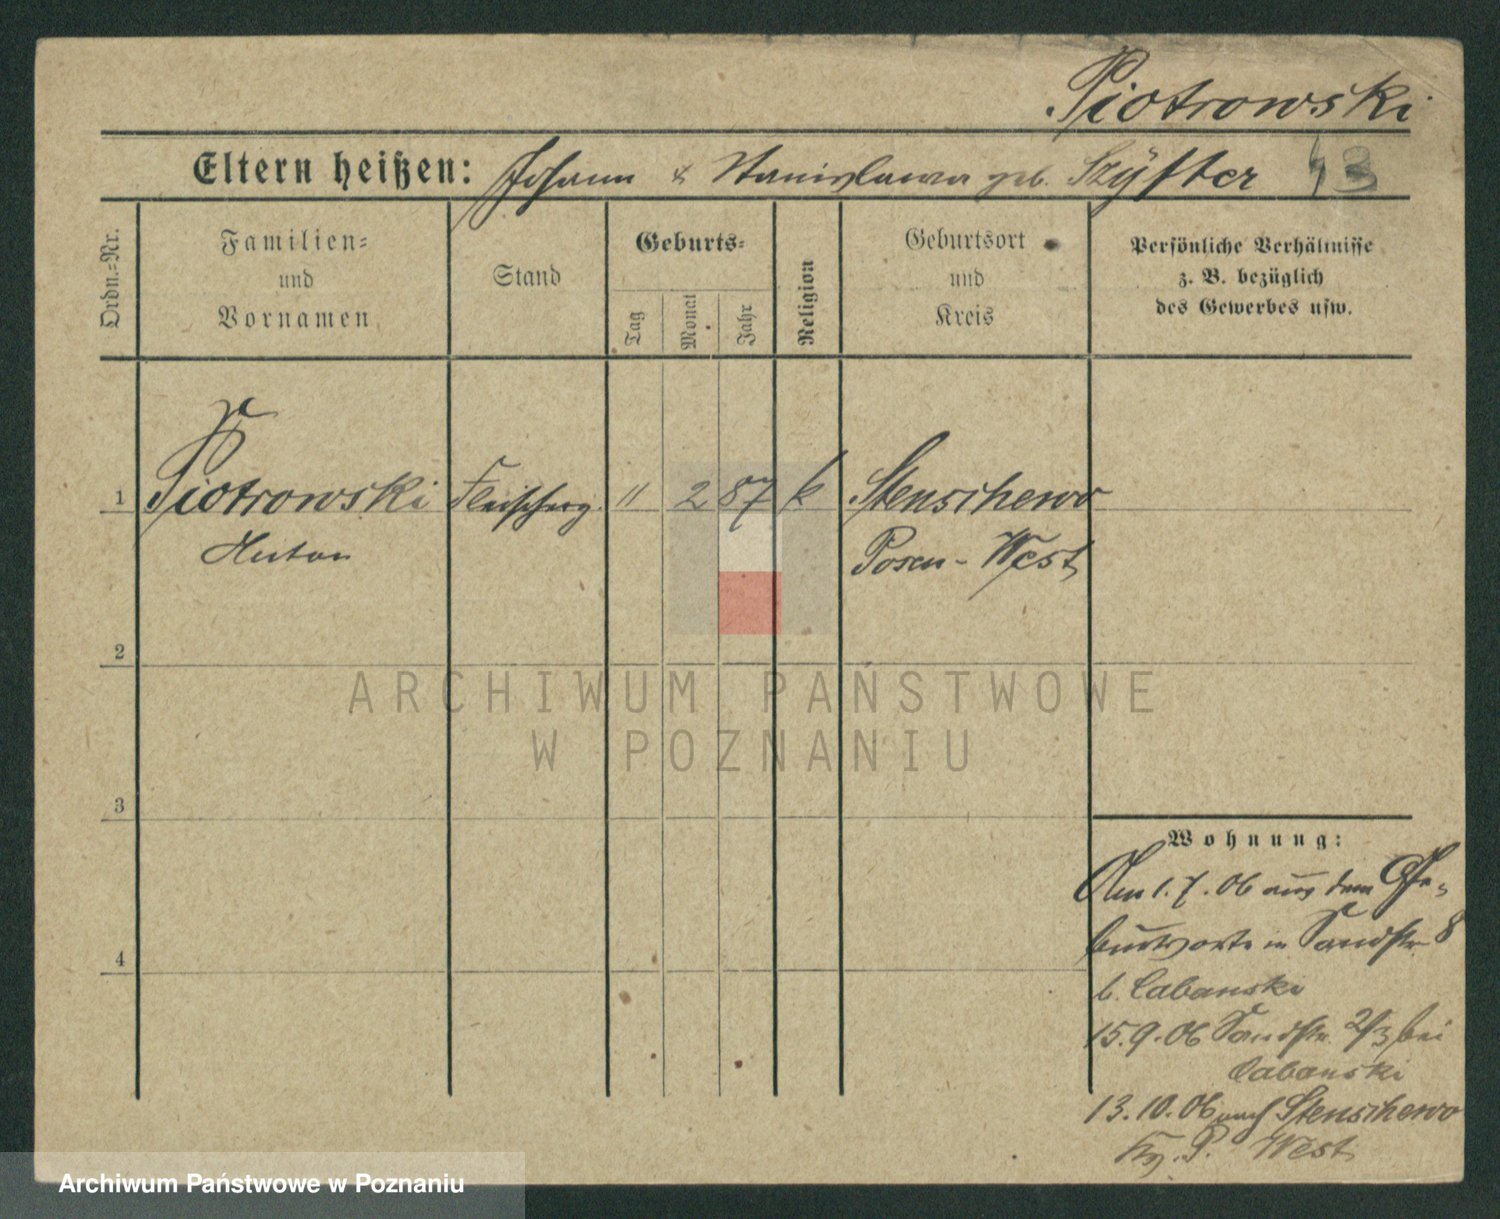 Piotrowski
Eltern heißen: Johann & Stanislawa geb. Szyfter
Ordn.=Nr.
Familien=
und
Vornamen
Stand
Geburts=
Tag
Monat
Jahr
Religion
Geburtsort
und
Kreis
Persönliche Verhältnisse
z. B. bezüglich
des Gewerbes usw.
1 Piotrowski Fleischerg. 11 2 87 k Stenschewo
Anton Posen-West
2
3
4
Wohnung:
Am 1.7.06 aus dem Ge-
burtsorte in Sandstr 8
b. Cabanski
15.9.06 Sandstr. 2/3 bei
Cabanski
13.10.06 nach Stenschewo
Kr. P. West
ARCHIWUM PAŃSTWOWE
W POZNANIU
Archiwum Państwowe w Poznaniu